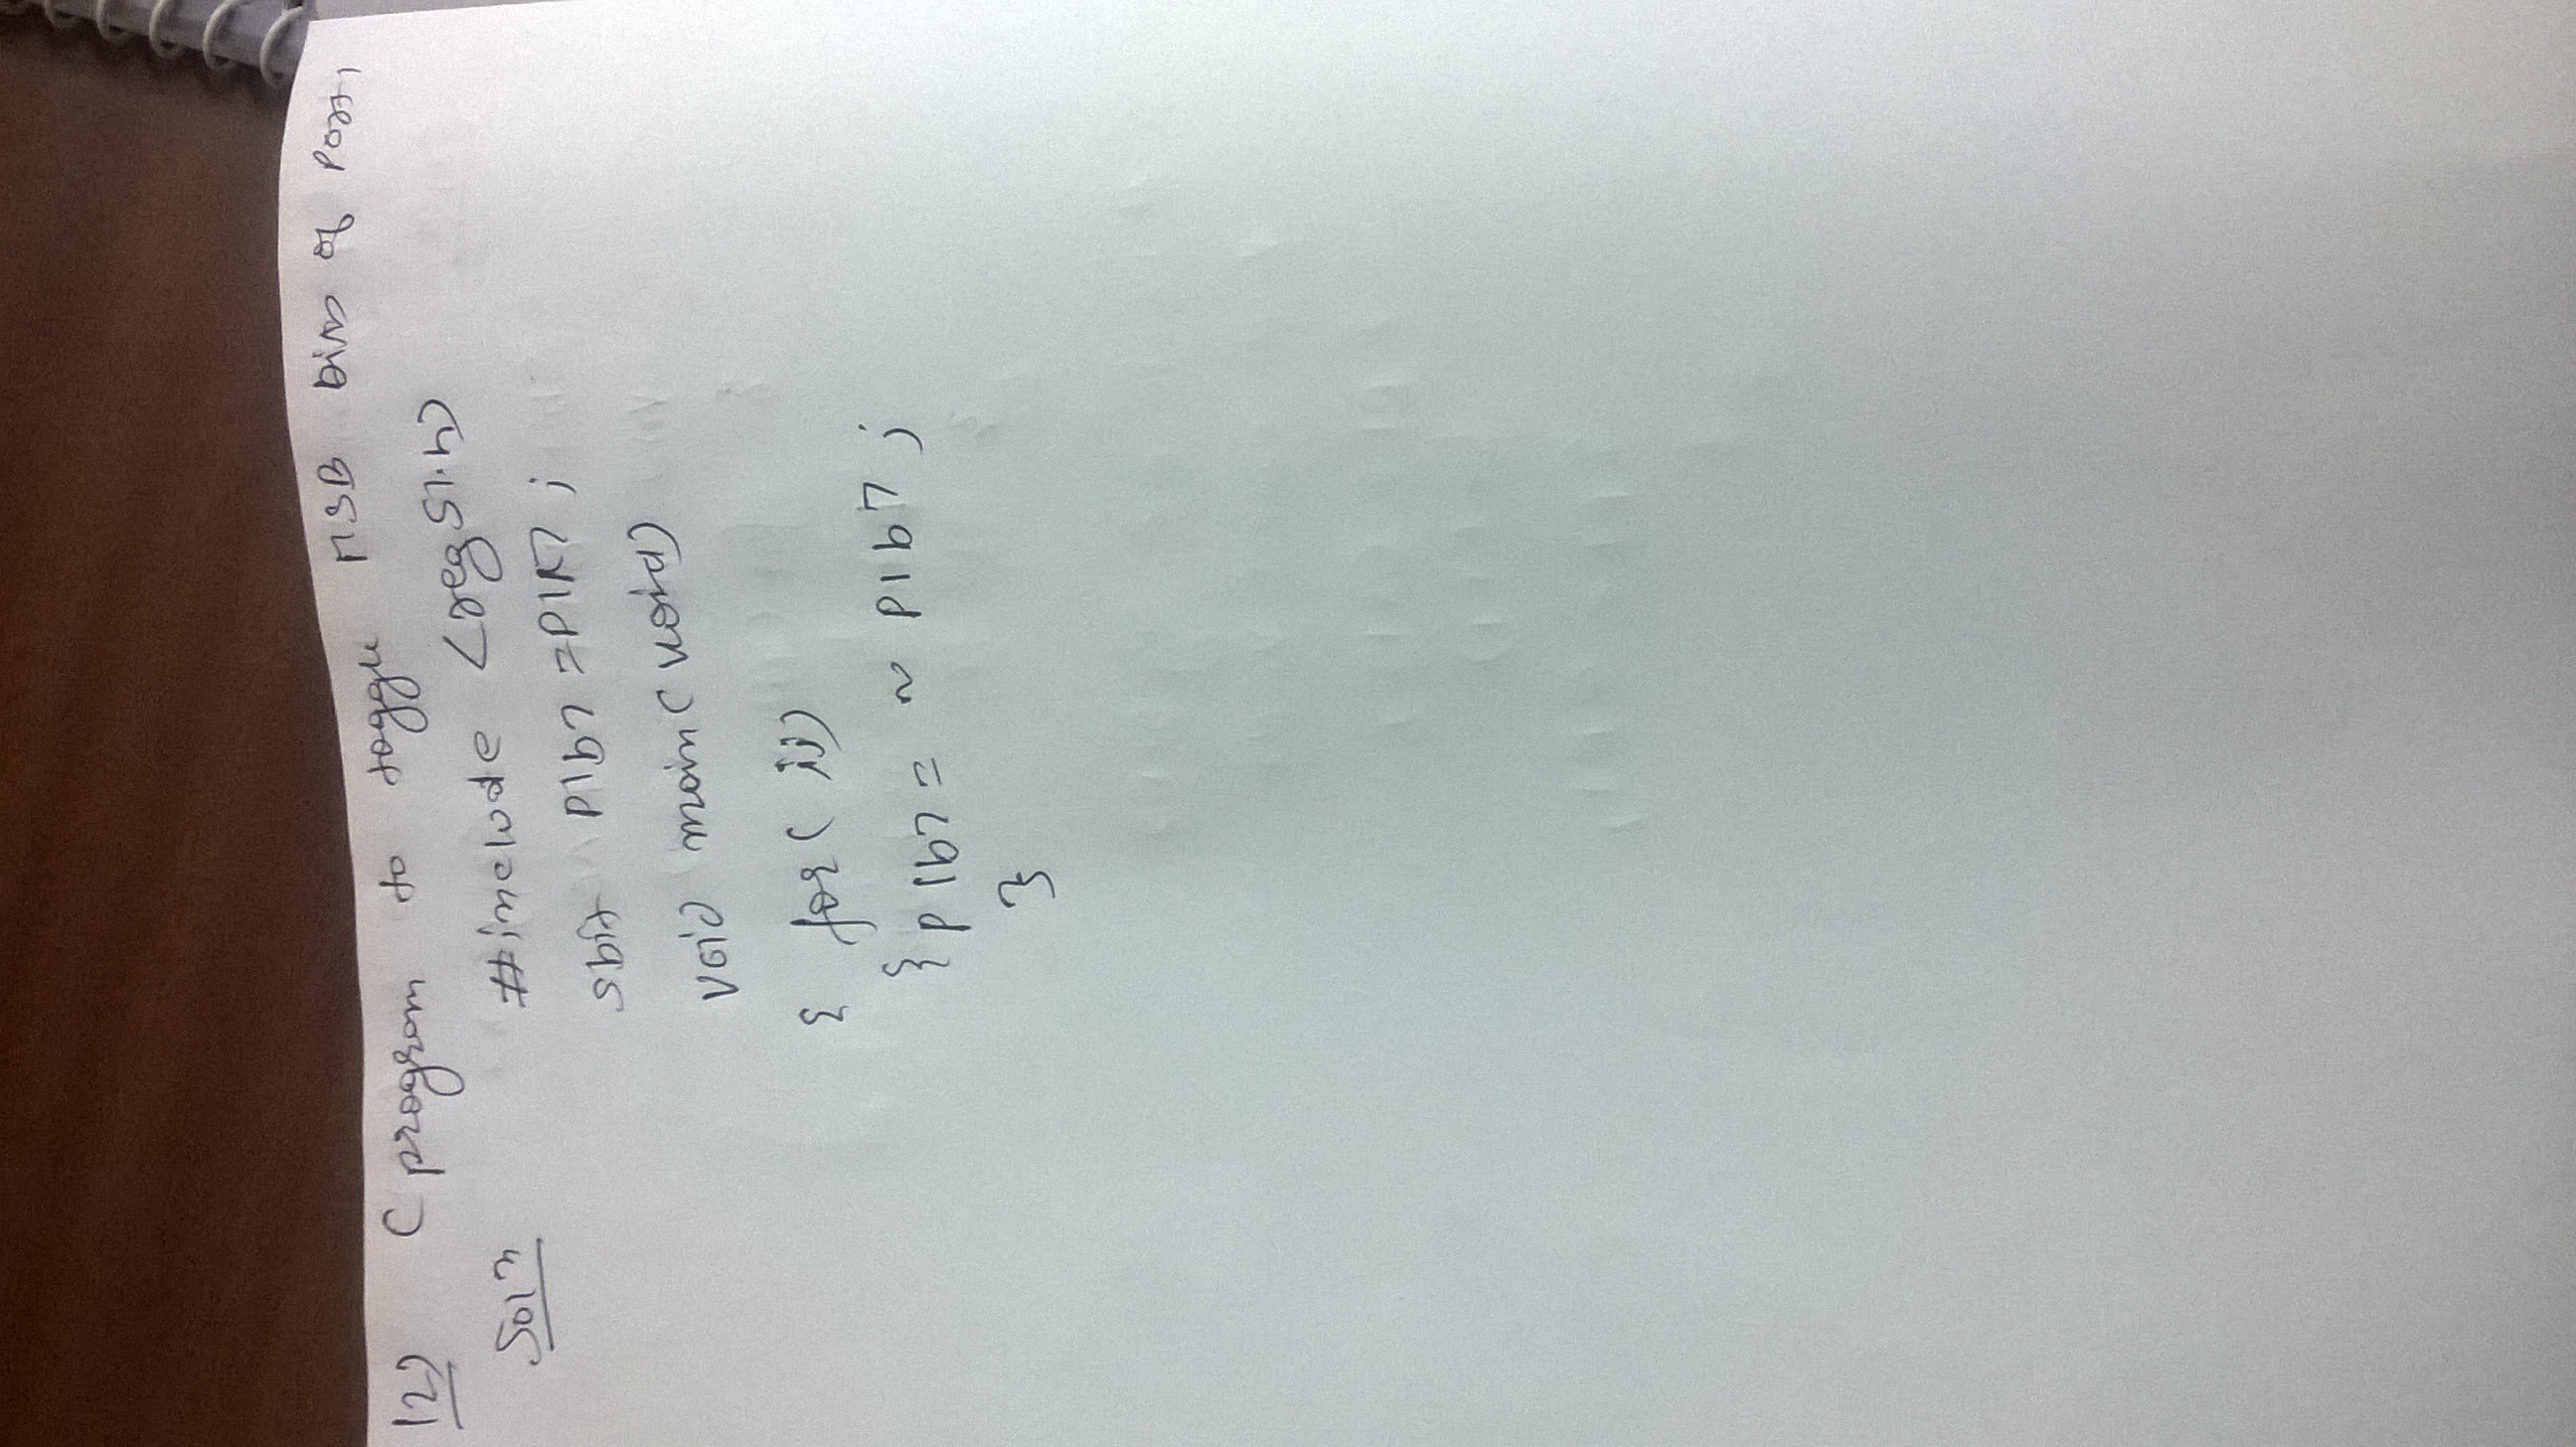 12) C program to toggle MSB bin of Port1
Soln #include <reg51.h>
sbit P1b7 = P1^7;
void main(void)
{ for(;;)
{ P1b7 = ~ P1b7;
}